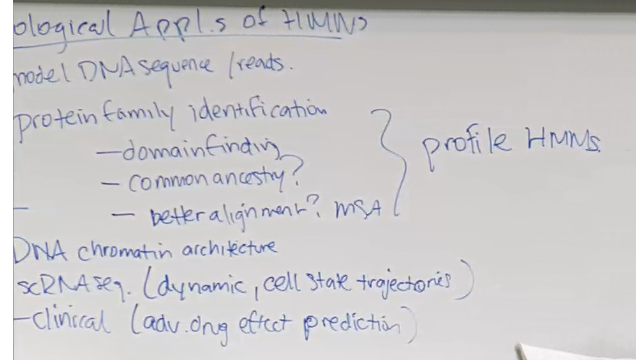 ological Appl.s of HMMs
model DNA sequence / reads.
protein family identification
- domain finding
- common ancestry?
- better alignment? MSA
profile HMMs.
DNA chromatin architecture
scRNAseq. (dynamic, cell state trajectories)
- clinical (adv. drug effect prediction)